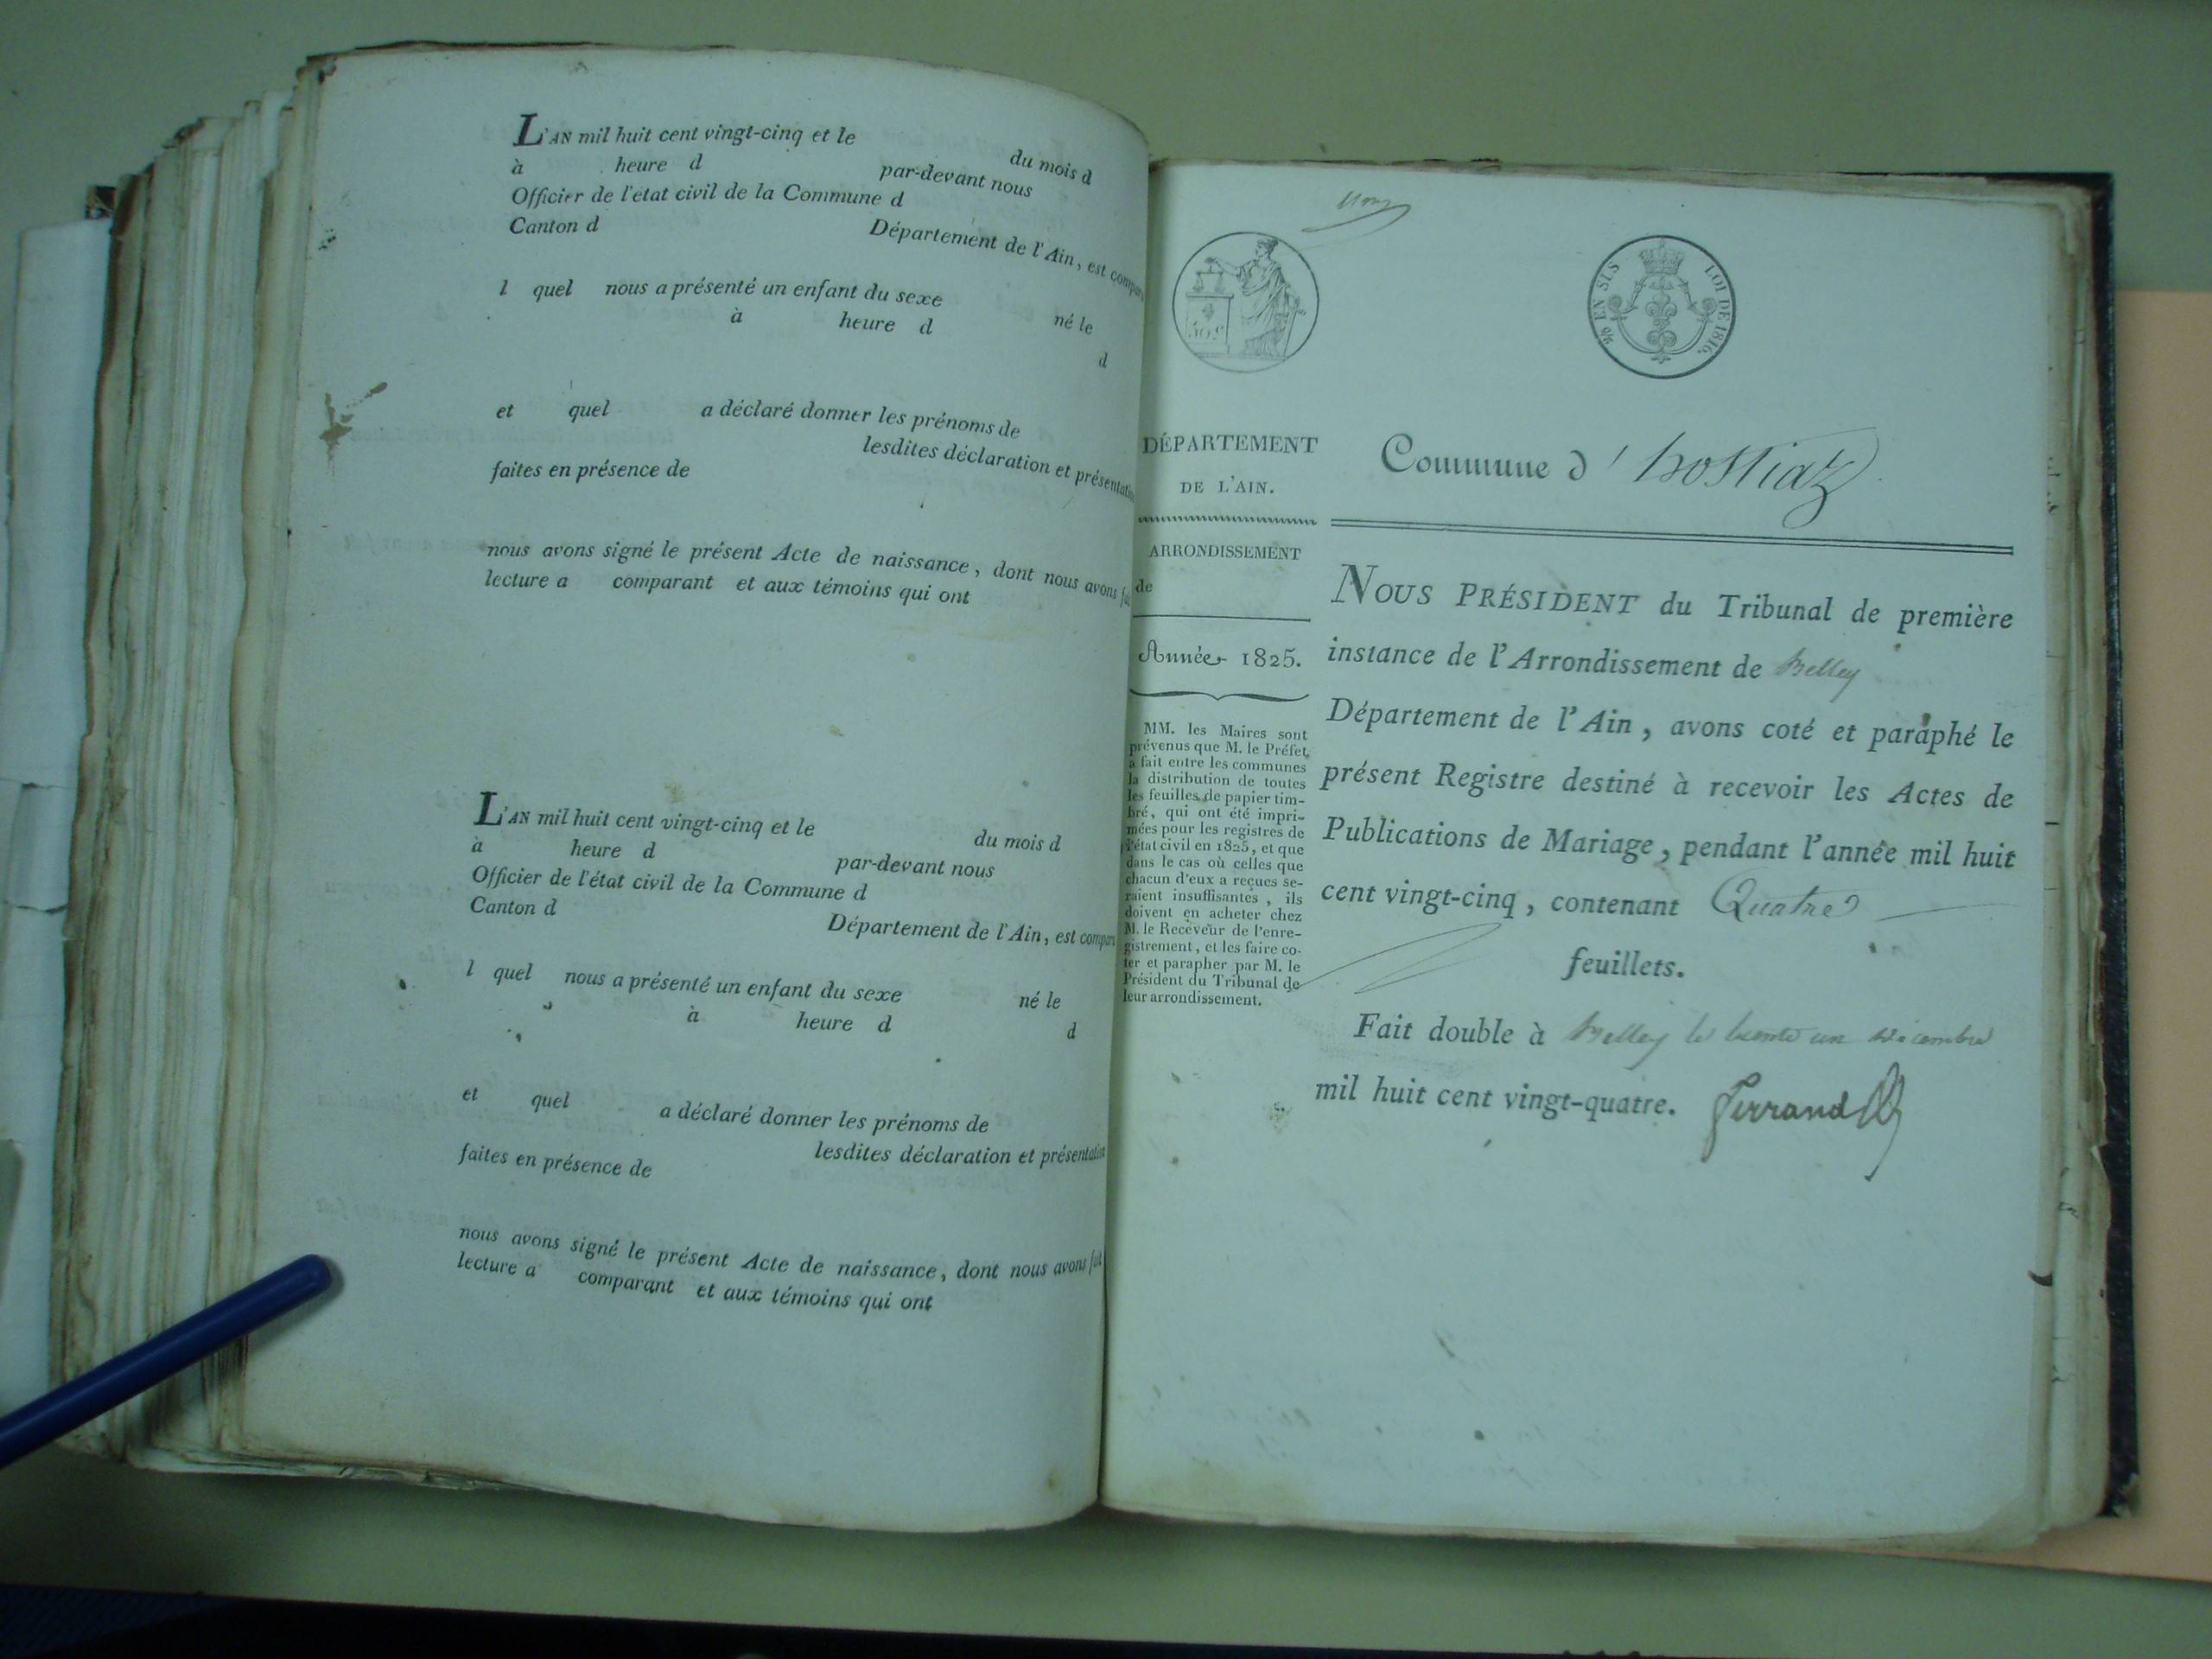 L'AN mil huit cent vingt-cinq et le du mois d
à heure d par-devant nous
Officier de l'état civil de la Commune d
Canton d Département de l'Ain, est compar
l quel nous a présenté un enfant du sexe né le
à heure d d
et quel a déclaré donner les prénoms de
lesdites déclaration et présentation
faites en présence de
nous avons signé le présent Acte de naissance, dont nous avons fait
lecture a comparant et aux témoins qui ont
L'AN mil huit cent vingt-cinq et le du mois d
à heure d par-devant nous
Officier de l'état civil de la Commune d
Canton d Département de l'Ain, est compar
l quel nous a présenté un enfant du sexe né le
à heure d d
et quel a déclaré donner les prénoms de
lesdites déclaration et présentation
faites en présence de
nous avons signé le présent Acte de naissance, dont nous avons fait
lecture a comparant et aux témoins qui ont
EN SUS LOI DE 1816.
DÉPARTEMENT
DE L'AIN.
ARRONDISSEMENT
de
Année 1825.
MM. les Maires sont
prévenus que M. le Préfet
a fait entre les communes
la distribution de toutes
les feuilles de papier tim-
bré, qui ont été impri-
mées pour les registres de
l'état civil en 1825, et que
dans le cas où celles que
chacun d'eux a reçues se-
raient insuffisantes, ils
doivent en acheter chez
M. le Receveur de l'enre-
gistrement, et les faire co-
ter et parapher par M. le
Président du Tribunal de
leur arrondissement.
Commune d'hostiaz
NOUS PRÉSIDENT du Tribunal de première
instance de l'Arrondissement de Belley
Département de l'Ain, avons coté et paraphé le
présent Registre destiné à recevoir les Actes de
Publications de Mariage, pendant l'année mil huit
cent vingt-cinq, contenant Quatre
feuillets.
Fait double à Belley le trente un Décembre
mil huit cent vingt-quatre. Ferrand